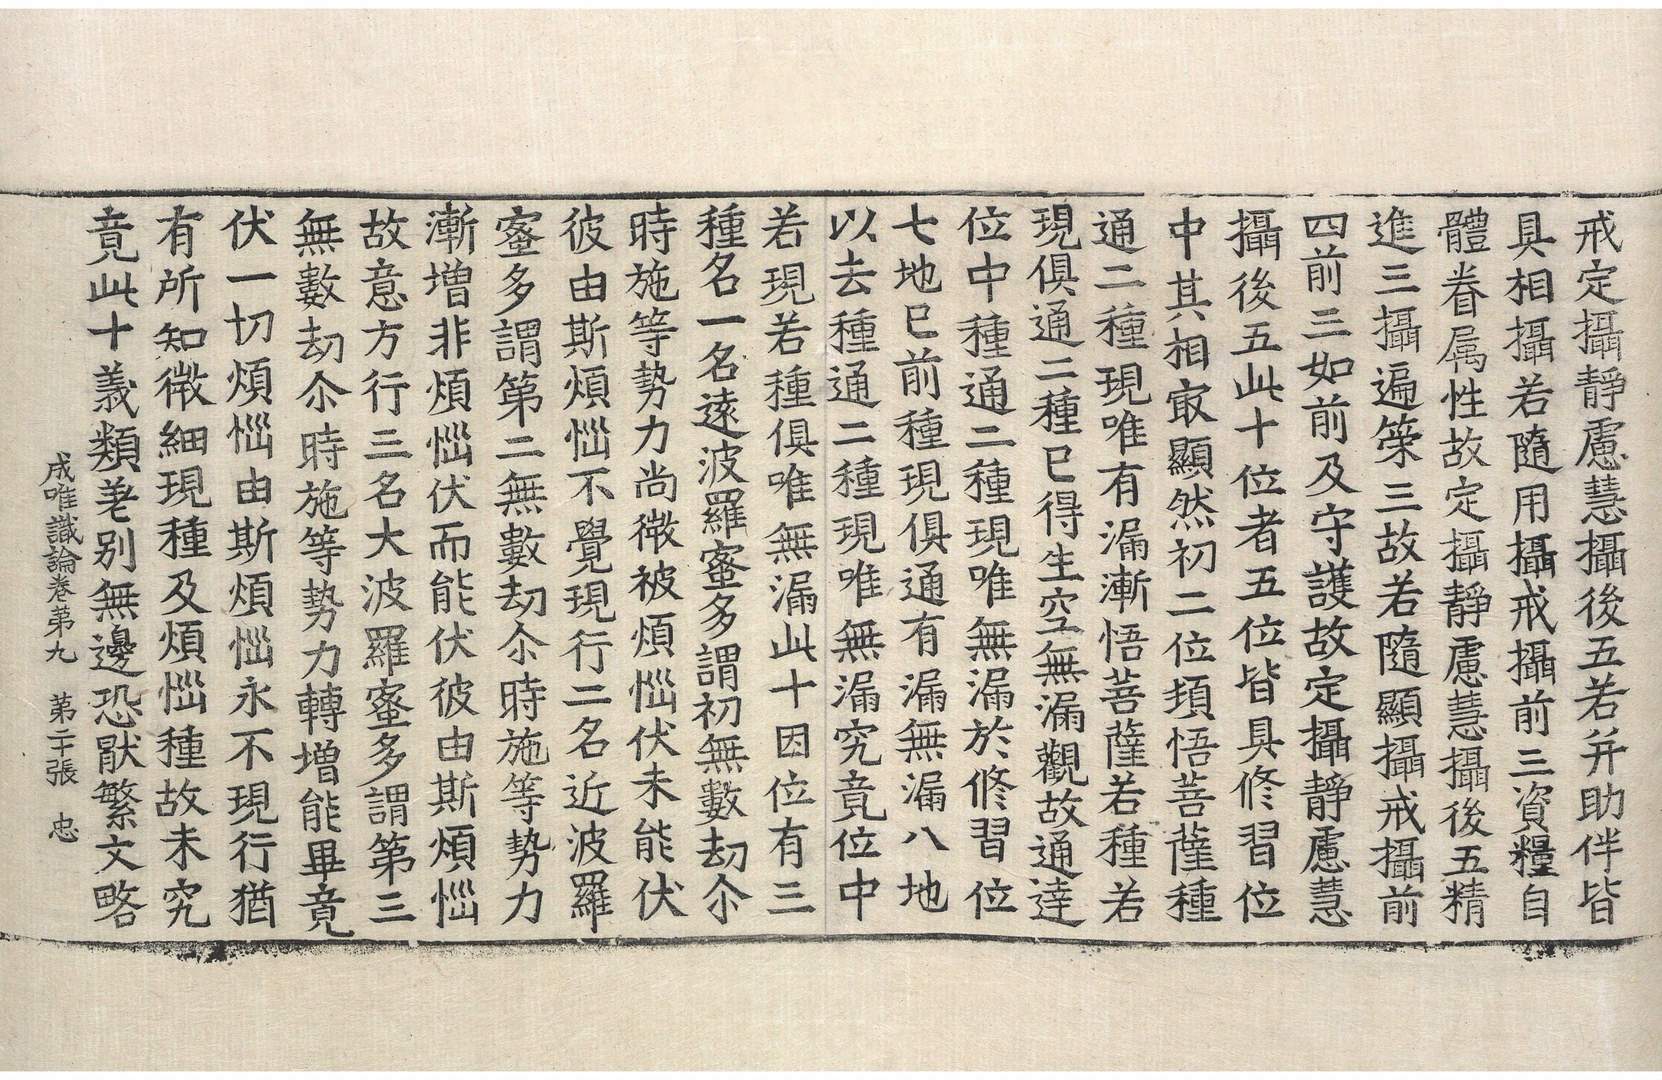 戒定攝靜慮慧攝後五若并助伴皆
具相攝若隨用攝戒攝前三資糧自
體眷属性故定攝靜慮慧攝後五精
進三攝遍策三故若隨顯攝戒攝前
四前三如前及守護故定攝靜慮慧
攝後五此十位者五位皆具修習位
中其相㝡顯然初二位頓悟菩薩種
通二種現唯有漏漸悟菩薩若種若
現俱通二種已得生空無漏觀故通達
位中種通二種現唯無漏於修習位
七地已前種現俱通有漏無漏八地
以去種通二種現唯無漏究竟位中
若現若種俱唯無漏此十因位有三
種名一名遠波羅蜜多謂初無數劫尒
時施等勢力尚微被煩惱伏未能伏
彼由斯煩惱不覺現行二名近波羅
蜜多謂第二無數劫尒時施等勢力
漸增非煩惱伏而能伏彼由斯煩惱
故意方行三名大波羅蜜多謂第三
無數劫尒時施等勢力轉增能畢竟
伏一切煩惱由斯煩惱永不現行猶
有所知微細現種及煩惱種故未究
竟此十義類差別無邊恐猒繁文略
成唯識論卷第九 第二十張 忠